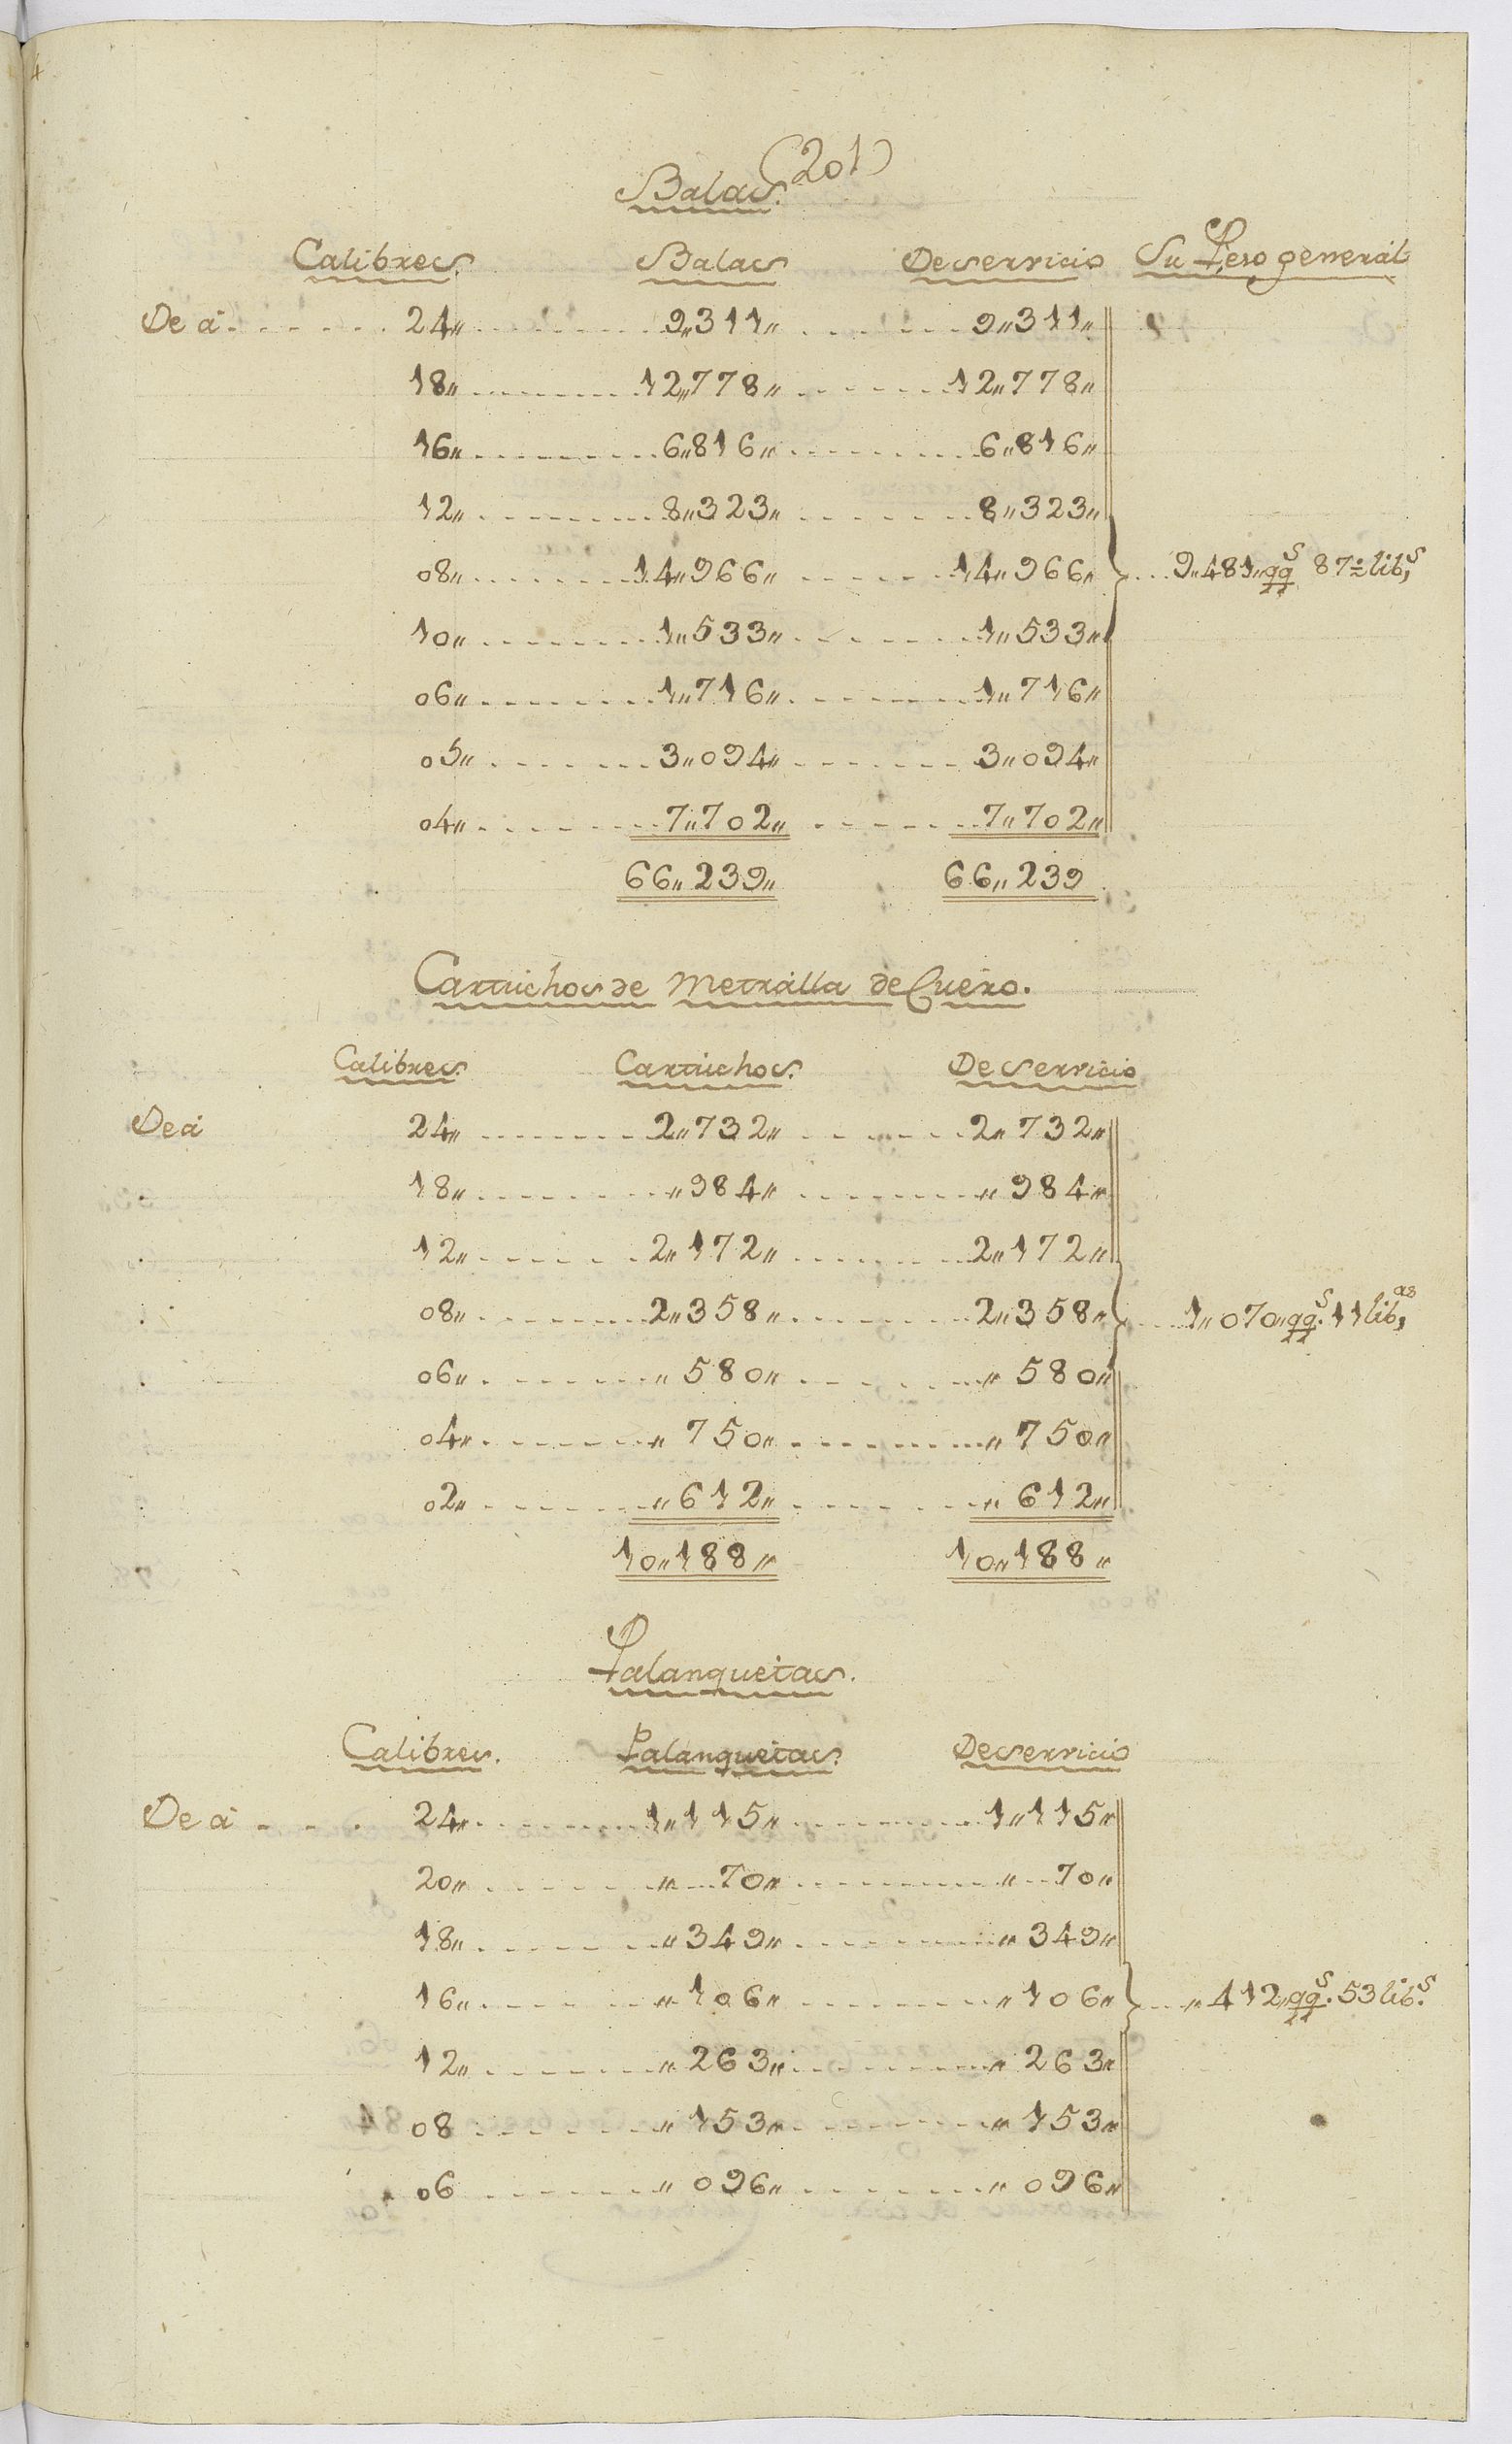 (201)
Balas.
Calibres. Balas De servicio Su Peso general
De á 24,, 9,,311,, 9,,311,,
18,, 12,,778,, 12,,778,,
16,, 6,,816,, 6,,816,,
12,, 8,,323,, 8,,323,,
08,, 14,,966,, 14,,966,, 9,,481,, qqˢ 87 libˢ
10,, 1,,533,, 1,,533,,
06,, 1,,716,, 1,,716,,
05,, 3,,094,, 3,,094,,
04,, 7,,702,, 7,,702,,
66,,239,, 66,,239
Cartuchos de Metralla de Cuero.
Calibres. Cartuchos. De servicio
De á 24,, 2,,732,, 2,,732,,
18,, ,,984,, ,,984,,
12,, 2,,172,, 2,,172,,
08,, 2,,358,, 2,,358,, 1,,070,, qqˢ. 11 libᵃˢ
06,, ,,580,, ,,580,,
04,, ,,750,, ,,750,,
02,, ,,612,, ,,612,,
10,,188,, 10,,188,,
Palanquetas.
Calibres. Palanquetas. De servicio
De á 24,, 1,,115,, 1,,115,,
20,, ,,70,, ,,70,,
18,, ,,349,, ,,349,,
16,, ,,106,, ,,106,, ,,412,, qqˢ. 53 libˢ.
12,, ,,263,, ,,263,,
08 ,,153,, ,,153,,
06 ,,096,, ,,096,,